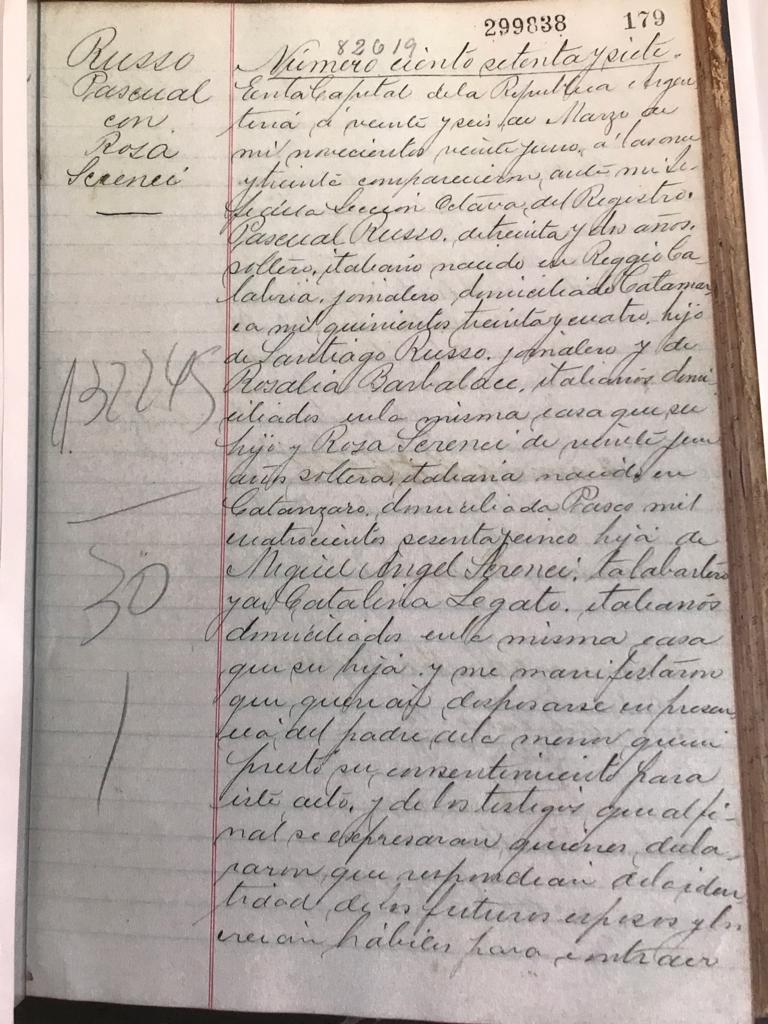 299838 179
82619
Russo
Pascual
con
Rosa
Serenci
Número ciento setenta y siete.
En la Capital de la Republica Argen
tina á veinte y seis de Marzo de
mil novecientos veinte y uno, á las once
y treinta comparecieron, ante mi Je-
fe de la Seccion Octava del Registro.
Pascual Russo, de treinta y dos años,
soltero, italiano nacido en Reggio Ca
labria, jornalero domiciliado Catamar
ca mil quinientos treinta y cuatro, hijo
de Santiago Russo, jornalero y de
Rosalia Barbalace, italianos domi
ciliados en la misma casa que su
hijo y Rosa Serenci de veinte y un
años soltera, italiana nacida en
Catanzaro, domiciliada Pasco mil
cuatrocientos sesenta y cinco hija de
Miguel Angel Serenci, talabartero
y de Catalina Legato, italianos
domiciliados en la misma casa
que su hija y me manifestaron
que querian desposarse en presen
cia del padre de la menor quien
prestó su consentimiento para
este acto, y de los testigos que al fi-
nal se expresaran quienes decla-
raron que respondian de la iden
tidad de los futuros esposos y los
creian hábiles para contraer
132245
30
1